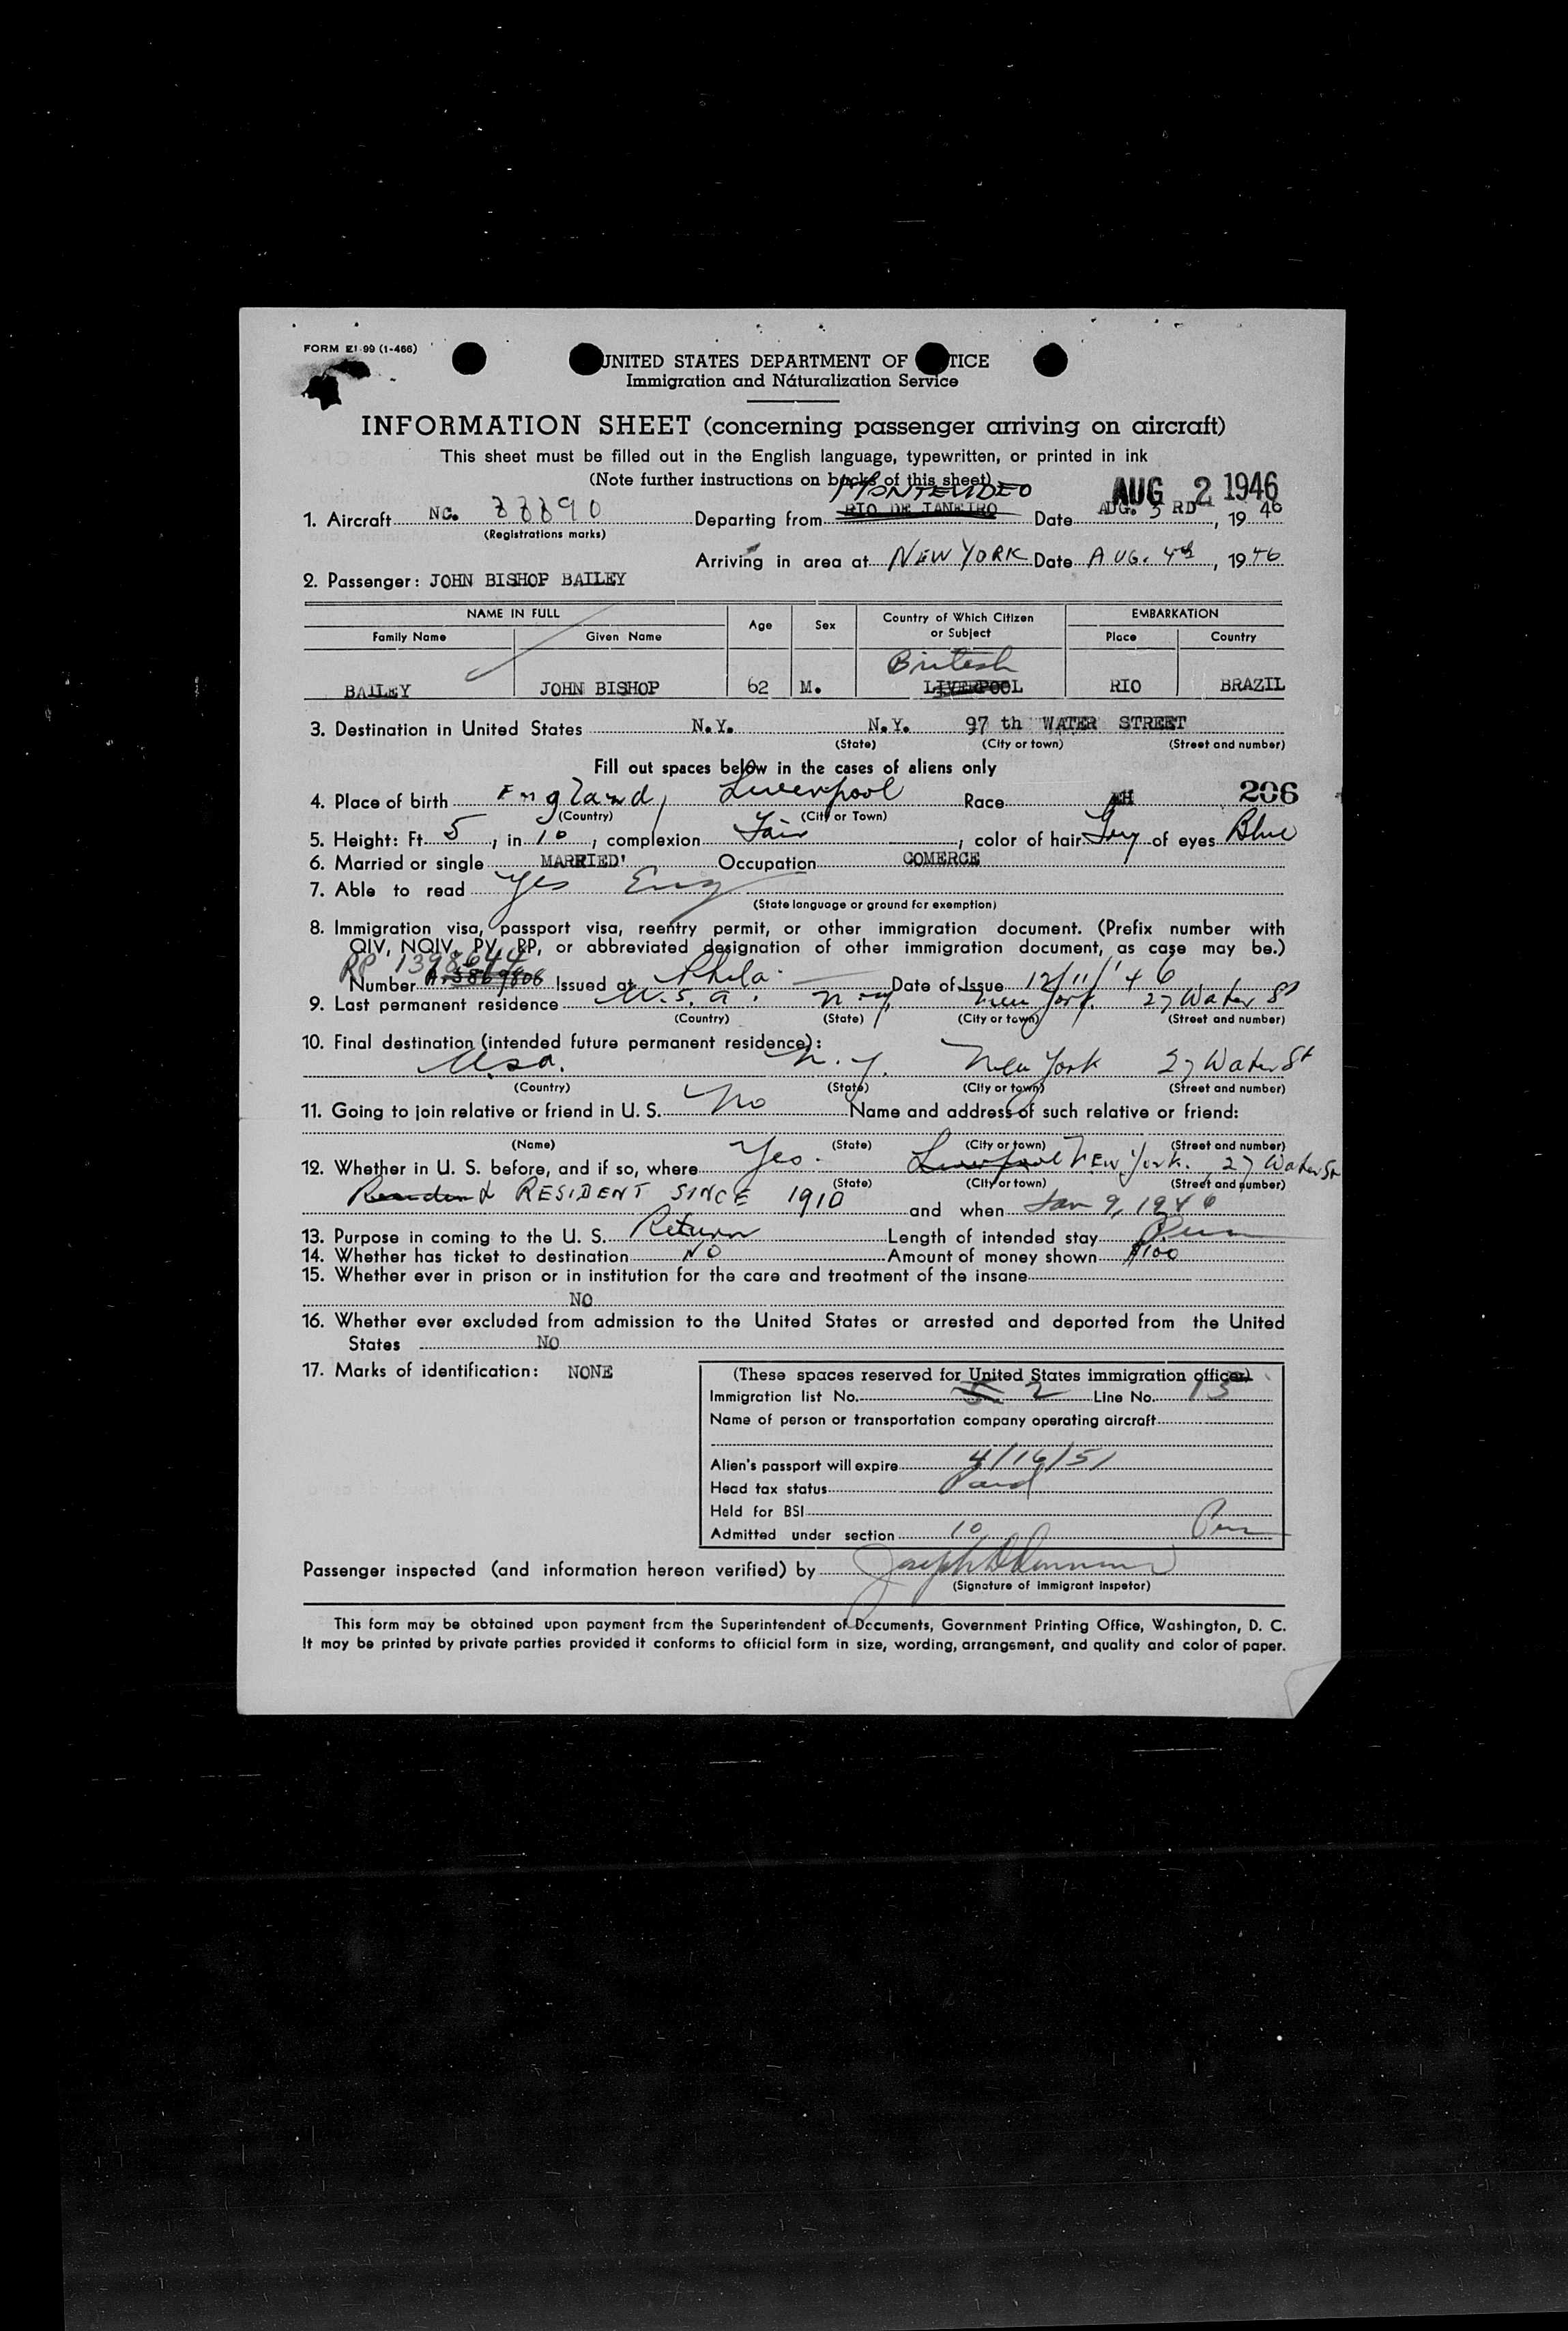 FORM EI-99 (1-466)
UNITED STATES DEPARTMENT OF TICE
Immigration and Naturalization Service
INFORMATION SHEET (concerning passenger arriving on aircraft)
This sheet must be filled out in the English language, typewritten, or printed in ink
(Note further instructions on back of this sheet)
MONTEVIDEO AUG 2 1946
1. Aircraft NC. 88890 Departing from RIO DE JANEIRO Date AUG. 3 RD, 1946
(Registrations marks)
Arriving in area at NEW YORK Date AUG. 4th, 1946
2. Passenger: JOHN BISHOP BAILEY
NAME IN FULL Age Sex Country of Which Citizen or Subject EMBARKATION
Family Name Given Name Place Country
British
BAILEY JOHN BISHOP 62 M. LIVERPOOL RIO BRAZIL
3. Destination in United States N.Y. N.Y. 97 th WATER STREET
(State) (City or town) (Street and number)
Fill out spaces below in the cases of aliens only
4. Place of birth England, Liverpool Race 206
(Country) (City or Town)
5. Height: Ft. 5, in 10, complexion Fair, color of hair Grey of eyes Blue
6. Married or single MARRIED' Occupation COMERCE
7. Able to read Yes Eng
(State language or ground for exemption)
8. Immigration visa, passport visa, reentry permit, or other immigration document. (Prefix number with
QIV, NQIV, PV, RP, or abbreviated designation of other immigration document, as case may be.)
RP 1398644
Number A-3869806 Issued at Phila. Date of Issue 12/11/46
9. Last permanent residence U.S.A. N.Y. New York. 27 Water St
(Country) (State) (City or town) (Street and number)
10. Final destination (intended future permanent residence):
Usa. N.Y. New York 27 Water St
(Country) (State) (City or town) (Street and number)
11. Going to join relative or friend in U. S. No Name and address of such relative or friend:
(Name) (State) (City or town) (Street and number)
12. Whether in U. S. before, and if so, where Yes. Liverpool New York. 27 Water St
(State) (City or town) (Street and number)
Resident RESIDENT SINCE 1910 and when Jan 9, 1946
13. Purpose in coming to the U. S. Return Length of intended stay Perm
14. Whether has ticket to destination NO Amount of money shown $100
15. Whether ever in prison or in institution for the care and treatment of the insane
NO
16. Whether ever excluded from admission to the United States or arrested and deported from the United
States NO
17. Marks of identification: NONE
(These spaces reserved for United States immigration officer)
Immigration list No. 2 Line No. 13
Name of person or transportation company operating aircraft
Alien's passport will expire 4/16/51
Head tax status Paid
Held for BSI
Admitted under section 10 Perm
Passenger inspected (and information hereon verified) by Joseph
(Signature of immigrant inspetor)
This form may be obtained upon payment from the Superintendent of Documents, Government Printing Office, Washington, D. C.
It may be printed by private parties provided it conforms to official form in size, wording, arrangement, and quality and color of paper.